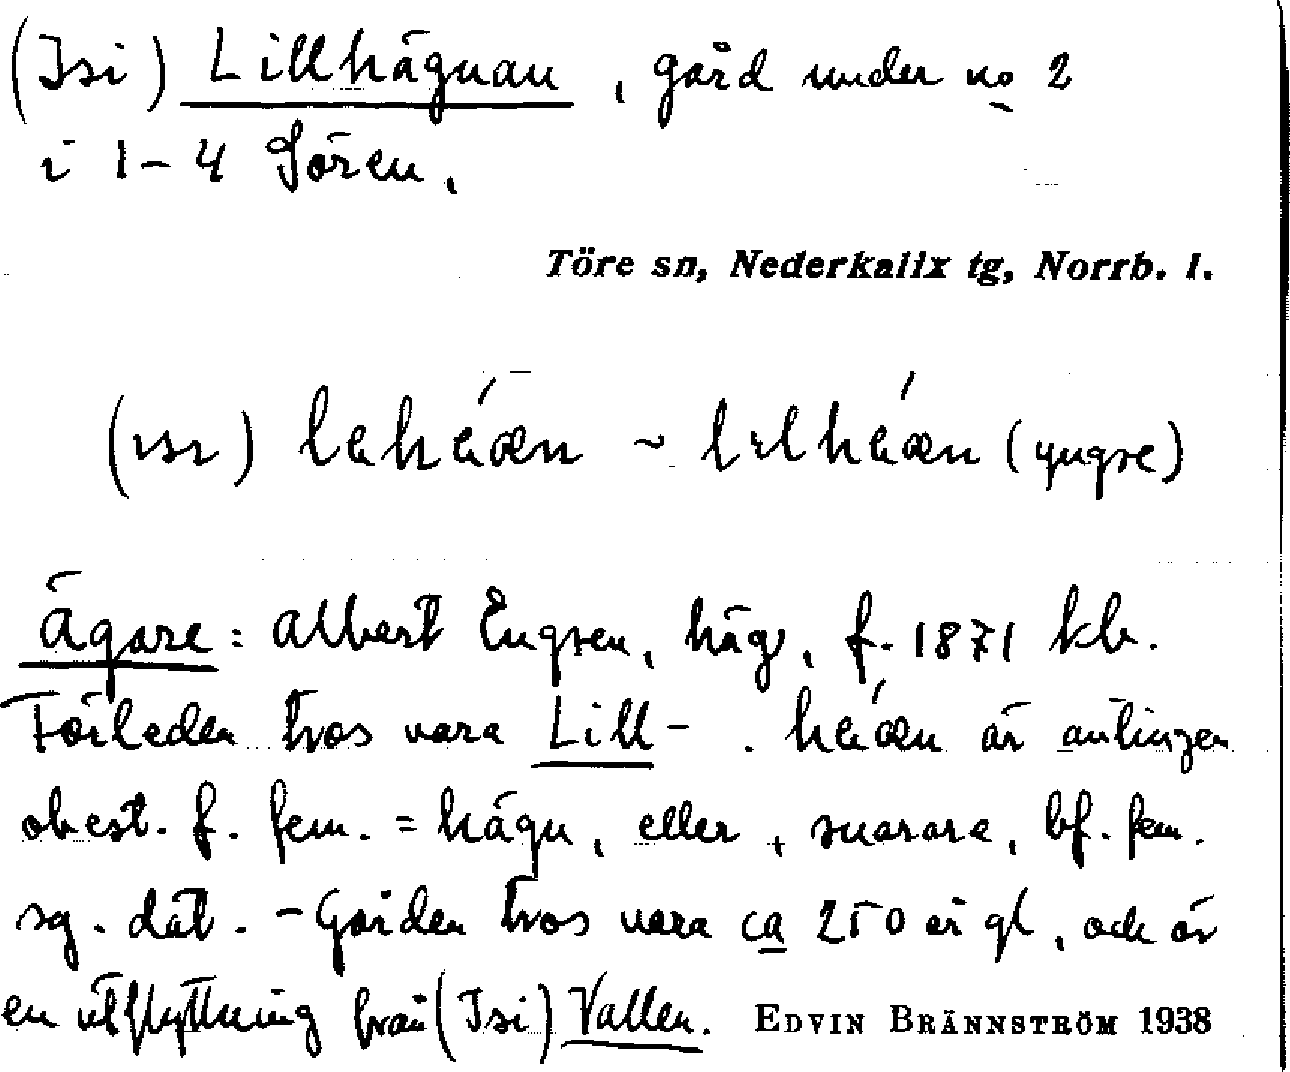 (Isi) Lillhägnan, gård under no 2
i 1-4 Sören.
Töre sn, Nederkalix tg, Norrb. l.
(ısı) ~ (yngre)
Ägare: Albert Engren, häg, f. 1871 kb.
Förleden tros vara Lill-. är antingen
obest. f. fem. = hägn, eller, snarare, bf. fem.
sg. dat. - Gården tros vara ca 250 år gl, och är
en utflyttning från (Isi) Vallen. EDVIN BRÄNNSTRÖM 1938